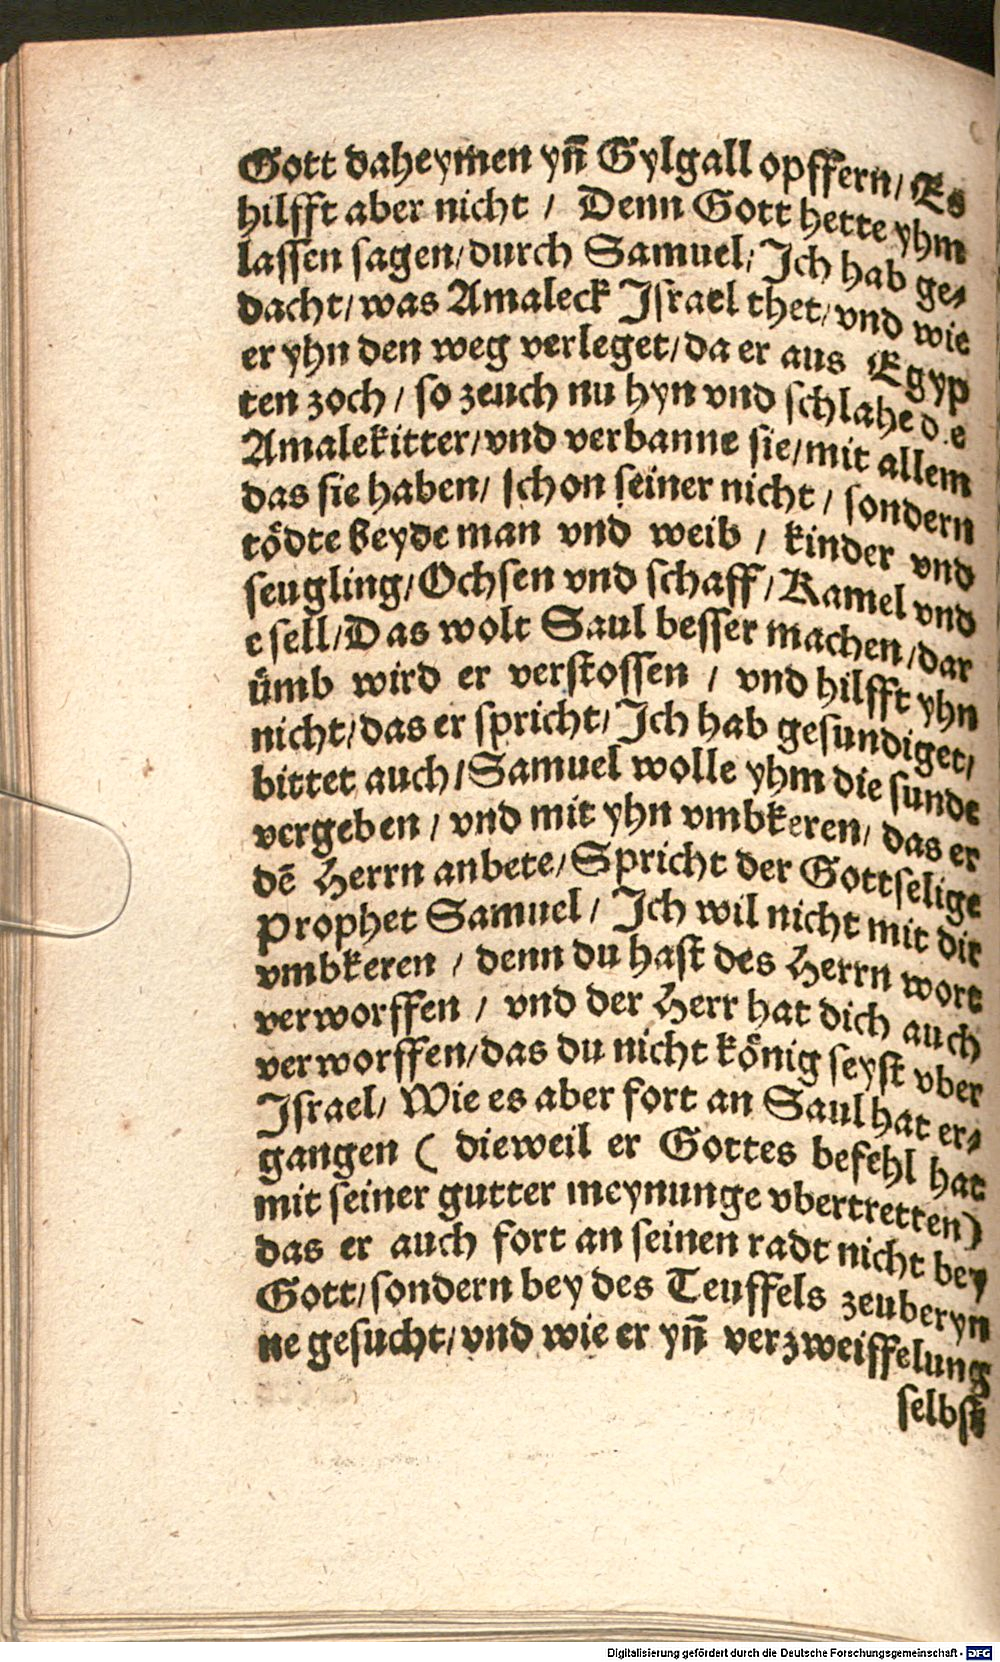 Gott daheymen yn̄ Gylgall opffern/ Es
hilfft aber nicht / Denn Gott hette yhm
lassen sagen/durch Samuel/ Ich hab ge⸗
dacht/was Amaleck Israel thet/vnd wie
er yhn den weg verleget/da er aus Egyp
ten zoch / so zeuch nu hyn vnd schlahe d.e
Amalekitter/vnd verbanne sie/mit allem
das sie haben/ schon seiner nicht / sondern
tödte beyde man vnd weib / kinder vnd
seugling/Ochsen vnd schaff/Kamel vnd
esell/Das wolt Saul besser machen/dar
ümb wird er verstossen / vnd hilfft yhn
nicht/das er spricht/Ich hab gesundiget/
bittet auch/Samuel wolle yhm die sunde
vergeben / vnd mit yhn vmbkeren/ das er
dē Herrn anbete/Spricht der Gottselige
Prophet Samuel/ Ich wil nicht mit dir
vmbkeren / denn du hast des Herrn wort
verworffen / vnd der Herr hat dich auch
verworffen/das du nicht könig seyst vber
Israel/ Wie es aber fort an Saul hat er⸗
gangen ( dieweil er Gottes befehl hat
mit seiner gutter meynunge vbertretten)
das er auch fort an seinen radt nicht bey
Gott/sondern bey des Teuffels zeuberyn
ne gesucht/vnd wie er yn̄ verzweiffelung
selbst
Digitalisierung gefördert durch die Deutsche Forschungsgemeinschaft - DFG